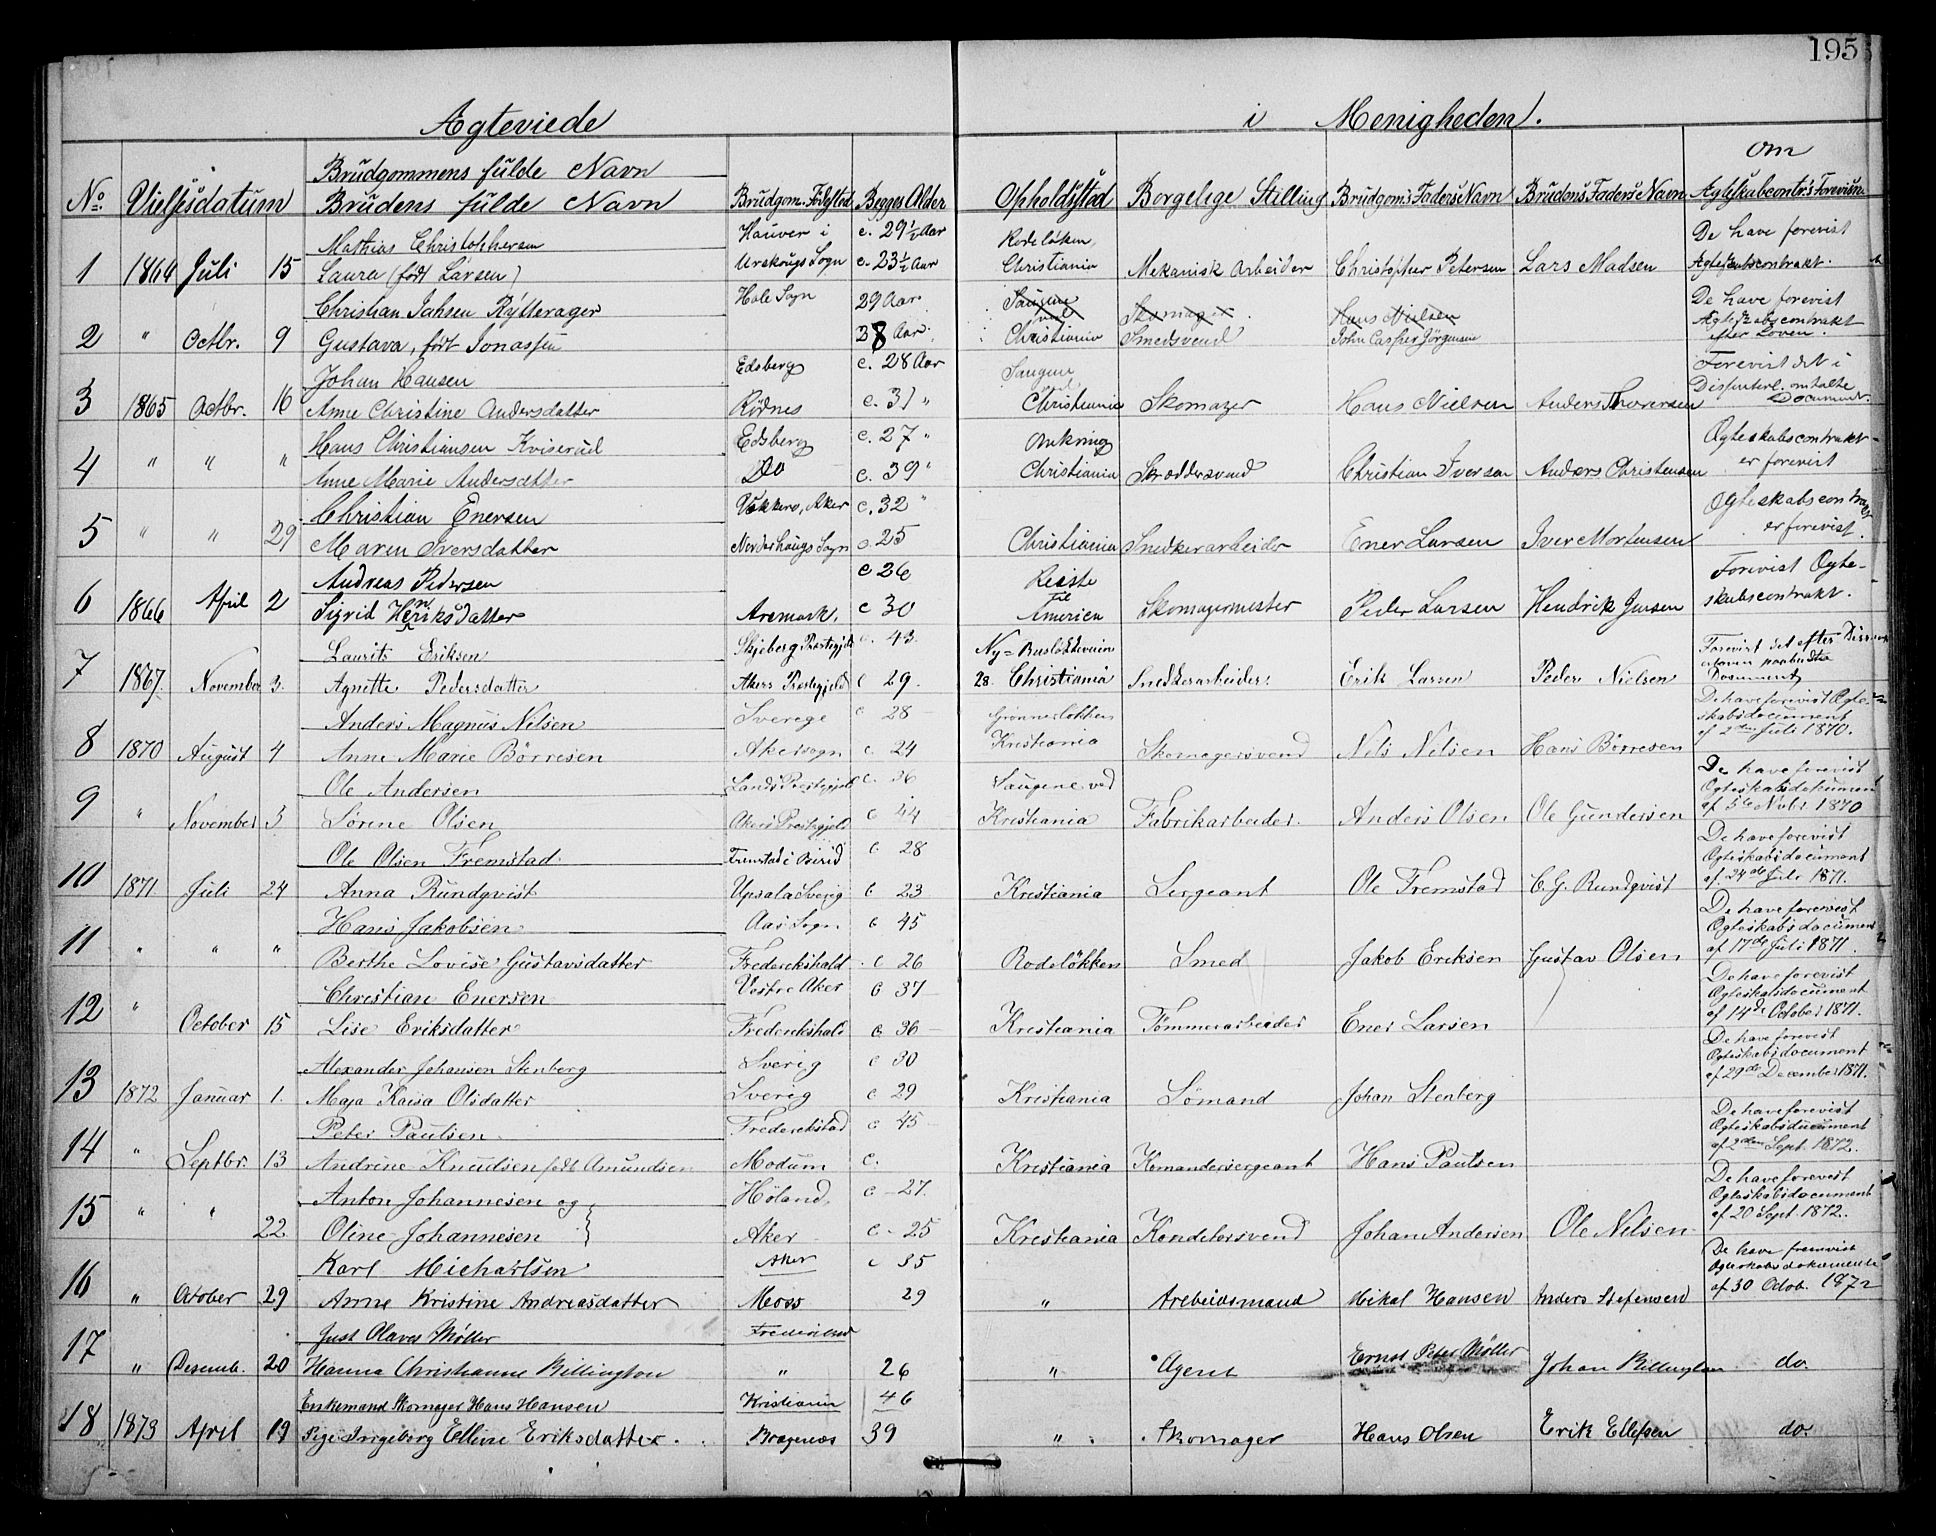 195
Ægteviede i Menigheden.
om
No. Vielsesdatum Brudgommens fulde Navn
Brudens fulde Navn Brudgom. Fødested Begges Alder Opholdsstad Borgelige Stilling Brudgom's Faders Navn Brudens Faders Navn Ægteskabcontr's Forevisn.
Mathias Christophersen Hauver i c. 29½ Aar Rodeløken, De have forevist
1 1864 Juli 15 Laura (født Larsen) Urskougs Sogn c. 23½ Aar Christiania Mekanisk Arbeider Christopher Petersen Lars Madsen Ægteskabscontrakt.
Christian Jahsen Rytterager Hole Sogn 29 Aar Saugene ved Skomager Hans Nielsen De have forevist
2 " Octbr. 9 Gustava, født Jonassen 38 Aar Christiania Smedsvend John Casper Jørgensen Ægteskabscontrakt
efter Loven.
Johan Hansen Edsberg c. 28 Aar Saugene ved Forevist det i
3 1865 Octbr. 16 Anne Christine Andersdatter Rødnes c. 31 " Christiania Skomager Hans Nielsen Anders Thoversen omtalte
Document.
Hans Christiansen Kviserud Edsberg c. 27 " Omkring Ogteskabscontrakt
4 " " " Anne Marie Andersdatter Do c. 39 " Christiania Skræddersvend Christian Iversen Anders Christensen er forevist
Christian Enersen Vækkerø, Aker c. 32 " Ogteskabscontrakt
5 " " 29 Maren Iversdatter Norderhougs Sogn c. 25 Christiania Snedkerarbeider Ener Larsen Iver Mortensen er forevist.
Andreas Pedersen c 26 Reiste til Forevist Ogte-
6 1866 April 2 Sigrid Henriksdatter Aremark. c 30 America Skomagermester Peder Larsen Hendrik Jensen skabscontrakt.
Laurits Eriksen Skjeberg Prestegjeld c. 43. Ny= Forevist det efter
7 1867. November 3. Agnette Pedersdatter Akers Prestegjeld c 29. 28. Christiania Snedkerarbeider. Erik Larsen Peder Nielsen
Document
Anders Magnus Nilsen Sverege c 28 Grønnerløkken De have forevist Ogte-
8 1870 August 4 Anne Marie Børresen Akersogn c. 24 Kristiania Skomagersvend Nils Nilsen Hans Børresen skabsdocument
af 2den Juli 1870.
Ole Andersen Lands Prestegjeld c. 36 Saugene ved De have forevist
9 " November 3 Sørine Olsen Akers Prestegjeld c 44 Kristiania Fabrikarbeider. Anders Olsen Ole Gundersen Ogteskabsdokument
af 3de Novbr 1870
Ole Olsen Fremstad. Fremstad i Birid c. 28 De have forevist
10 1871. Juli 24 Anna Rundqvist Upsala Sverig c 23 Kristiania Sergeant Ole Fremstad C. G. Rundqvist Ogteskabsdocument
af 24de Juli 1871.
Hans Jakobsen Aas Sogn c 45 De have forevist
11 " " " Berthe Lovise Gustavsdatter Frederikshald c 26 Rodeløkken Smed Jakob Eriksen Gustav Olsen Ogteskabsdocument
af 17de Juli 1871.
Christian Enersen Vestre Aker c 37 De have forevist
12 " October 15 Lise Eriksdatter Frederikshald c 36 Kristiania Tømmerarbeider Ener Larsen Ogteskabsdocument
af 14de October 1871.
Alexander Johansen Stenberg Sverig c 30 De have forevist
13 1872 Januar 1. Maja Kaisa Olsdatter Sverig c 29 Kristiania Sømand Johan Stenberg Ogteskabsdocument
af 29de December 1871.
Peter Paulsen Frederikstad c 45 De have forevist
14 " Septbr. 13 Andrine Knudsen født Amundsen Modum c. Kristiania Komandersergeant Hans Paulsen Ogteskabsdocument
af 2den Sept. 1872.
Anton Johannesen og Høland. c - 27. De have forevist
15 " " 22 Oline Johannesen Aker c - 25 Kristiania Konditorsvend Johan Andersen Ole Nilsen Ogteskabsdocument
af 20 Sept. 1872.
Karl Michaelsen Aker c 35 De have fremvist
16 " October 29 Anne Kristine Andreasdatter Moss 29 " Arbeidsmand Mikal Hansen Anders Stefensen Ogteskabsdokumente
af 30 Octob. 1872
Just Olaves Møller
17 " Desemb. 20 Hanna Christianne Billington " 26 " Agent Ernst Peter Møller Johan Billington do.
Enkemand Skomager Hans Hansen Kristiania 46
18 1873 April 19 Pige Ingeborg Elline Eriksdatter. Bragenes 39 " Skomager Hans Olsen Erik Ellefsen do.